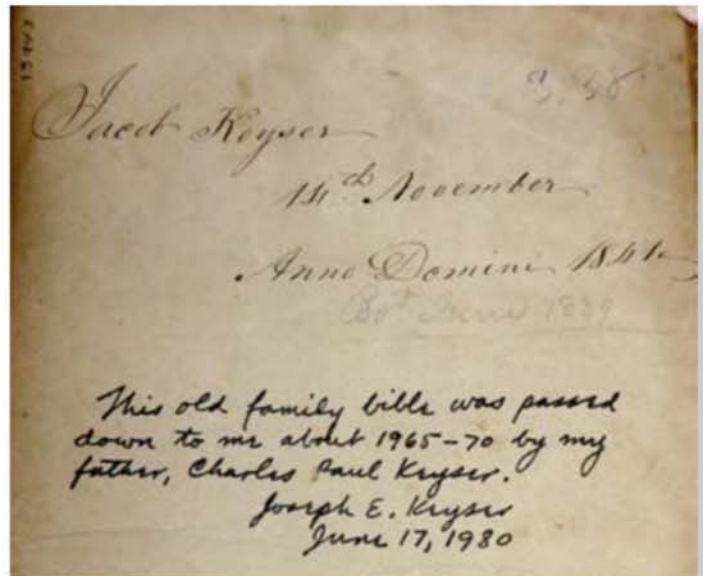 Jacob Keyser
14th November
Anno Domini 1841
This old family bible was passed
down to me about 1965-70 by my
father, Charles Paul Keyser.
Joseph E. Keyser
June 17, 1980